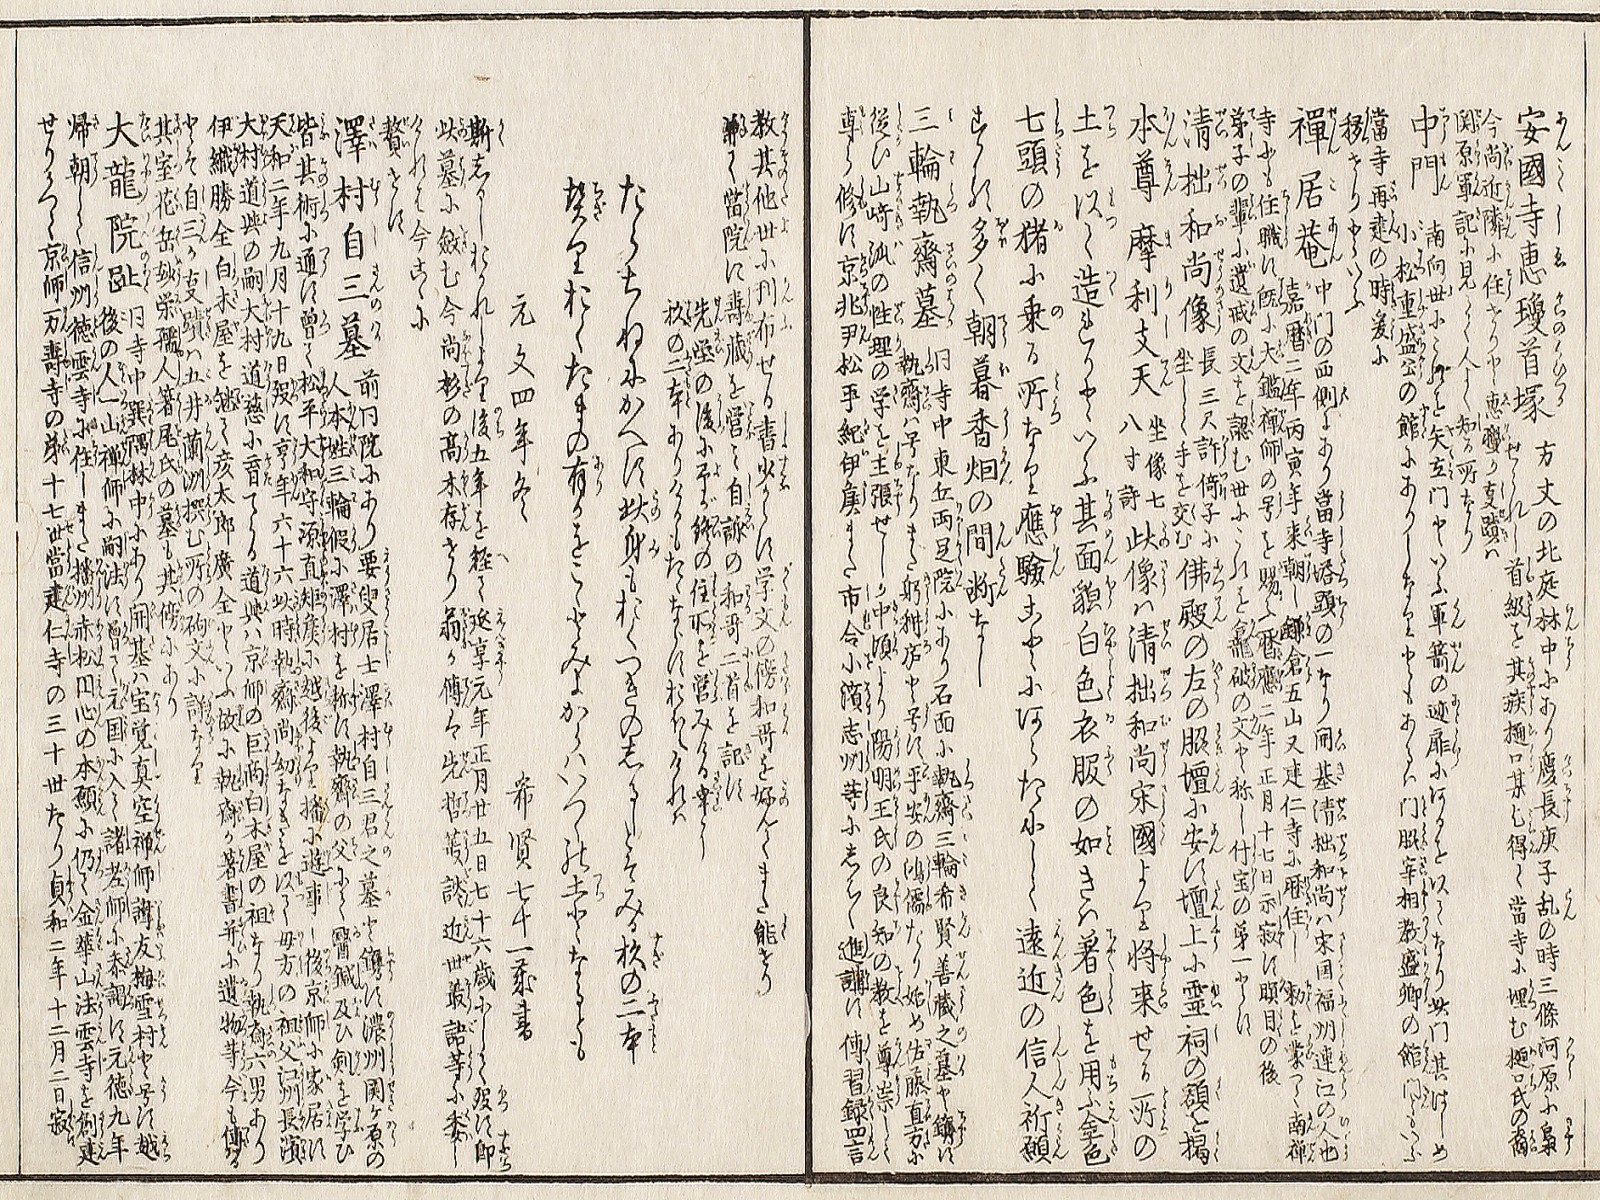 安國寺恵瓊首塚 方丈の北庭林中にあり慶長庚子乱の時三條河原に梟
せられし首級を其族樋口某乞得て當寺に埋む樋口氏の裔
今尚近隣に住せりと恵瓊の事蹟ハ
関原軍記に見えて人よく知る所なり
中門 南向世にこれを矢立門といふ軍箭の迹扉にあるを以てなり此門其はじめ
小松重盛公の館にありしなりともあるハ門脇宰相教盛卿の館門ともいふ
當寺再建の時爰に
移せりといふ
禪居菴 中門の西側にあり當寺塔頭の一なり開基清拙和尚ハ宋国福州連江の人也
嘉暦二年丙寅年来朝し鎌倉五山又建仁寺に歴住し勅を蒙つて南禅
寺にも住職す既に大鑑禅師の号を賜ふ暦應二年正月十七日示寂す瞑目の後
弟子の輩に遺戒の文を認む世にこれを龕破の文と称し什宝の第一とす
清拙和尚像 長三尺許倚子に
坐して手を交む
佛殿の左の脇壇に安す壇上に霊祠の額を掲
本尊摩利支天 坐像七
八寸許
此像ハ清拙和尚宋國より将来せる所の
土を以て造れりといふ其面貌白色衣服の如きハ著色を用ふ金色
七頭の猪に乗る所なり應驗ことにあらたにして遠近の信人祈願
をこめ多く朝暮香烟の間断なし
三輪執齋墓 同寺中東丘両足院にあり石面に執齋三輪希賢善蔵之墓と鐫す
執齋ハ号なりまた躬耕店と号す平安の鴻儒たり始め佐藤直方に
從ひ山崎派の性理の学を主張せしが中頃より陽明王氏の良知の教を尊崇して
専ら修す京兆尹松平紀伊侯また市令小濱志州等にしらく進講す傳習録四言
教其他世に刊布せる書少からす学文の傍和哥を好んてまた能せり
甞て當院に壽蔵を営て自詠の和哥二首を記す
先塋の後にわが終の住所を営みける傍に
杦の二本ありけるもたならすおほへけれハ
たらちねにかへす此身もおくつきのしるしとそみる杦の二本
埋おくたまの有かをこゝとみよからハいつれ土となるとも
元文四年冬 希賢七十一歳書
斯しるしおかれしより後五年を経て延享元年正月廿五日七十六歳にして歿す即
此墓に斂む今尚杉の高木存せり翁の傳ハ先哲叢談近世叢語等に委し
けれハ今こゝに
贅せす
澤村自三墓 前同院にあり要叟居士澤村自三君之墓と鐫す濃州関ヶ原の
人本姓三輪假に澤村を称す執齋の父にて醫鍼及ひ剣を学ひ
皆其術に通す曽て松平大和守源直矩侯に越後より播に遊事し後京師に家居す
天和二年九月十九日歿す享年六十六此時執齋尚幼なきを以て母方の祖父江州長濱
大村道與の嗣大村道慈に育てらる道與ハ京師の巨商白木屋の祖なり執齋六男あり
伊織勝全白木屋を継て彦太郎廣全といふ故に執齋が著書并に遺物等今も傳る
とそ自三の事蹟ハ五井蘭洲撰む所の碑文に詳なり
其室花岳妙栄孺人箸尾氏の墓も其傍にあり
大龍院趾 同寺中巽隅林中にあり開基ハ宝覚真空禅師諱友梅雪村と号す越
後の人一山禅師に嗣法す曽て元国に入て諸老師に参謁す元徳九年
帰朝して信州徳雲寺に住しまた播州赤松円心の本願に仍て金華山法雲寺を創建
せりかつて京師万壽寺の第十七世當建仁寺の三十世たり貞和二年十二月二日寂